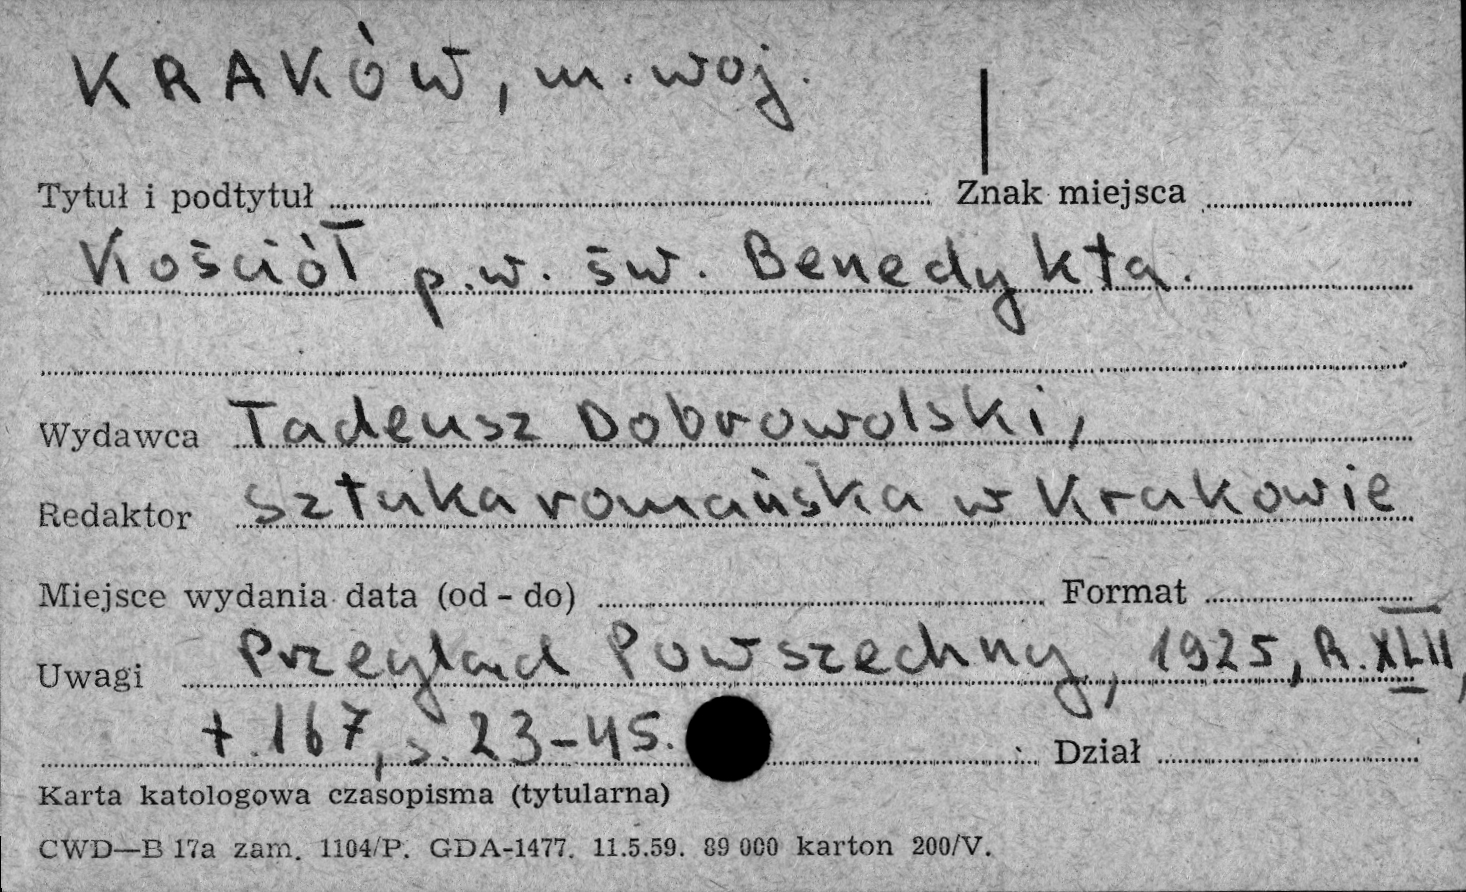 KRAKÓW, m. woj.
Tytuł i podtytuł Znak miejsca
Kościół p.w. św. Benedykta.
Wydawca Tadeusz Dobrowolski,
Redaktor Sztuka romańska w Krakowie
Miejsce wydania data (od - do) Format
Uwagi Przegląd Powszechny, 1925, R. XLII,
t. 167, s. 23-45. Dział
Karta katologowa czasopisma (tytularna)
CWD—B 17a zam. 1104/P. GDA-1477. 11.5.59. 89 000 karton 200/V.